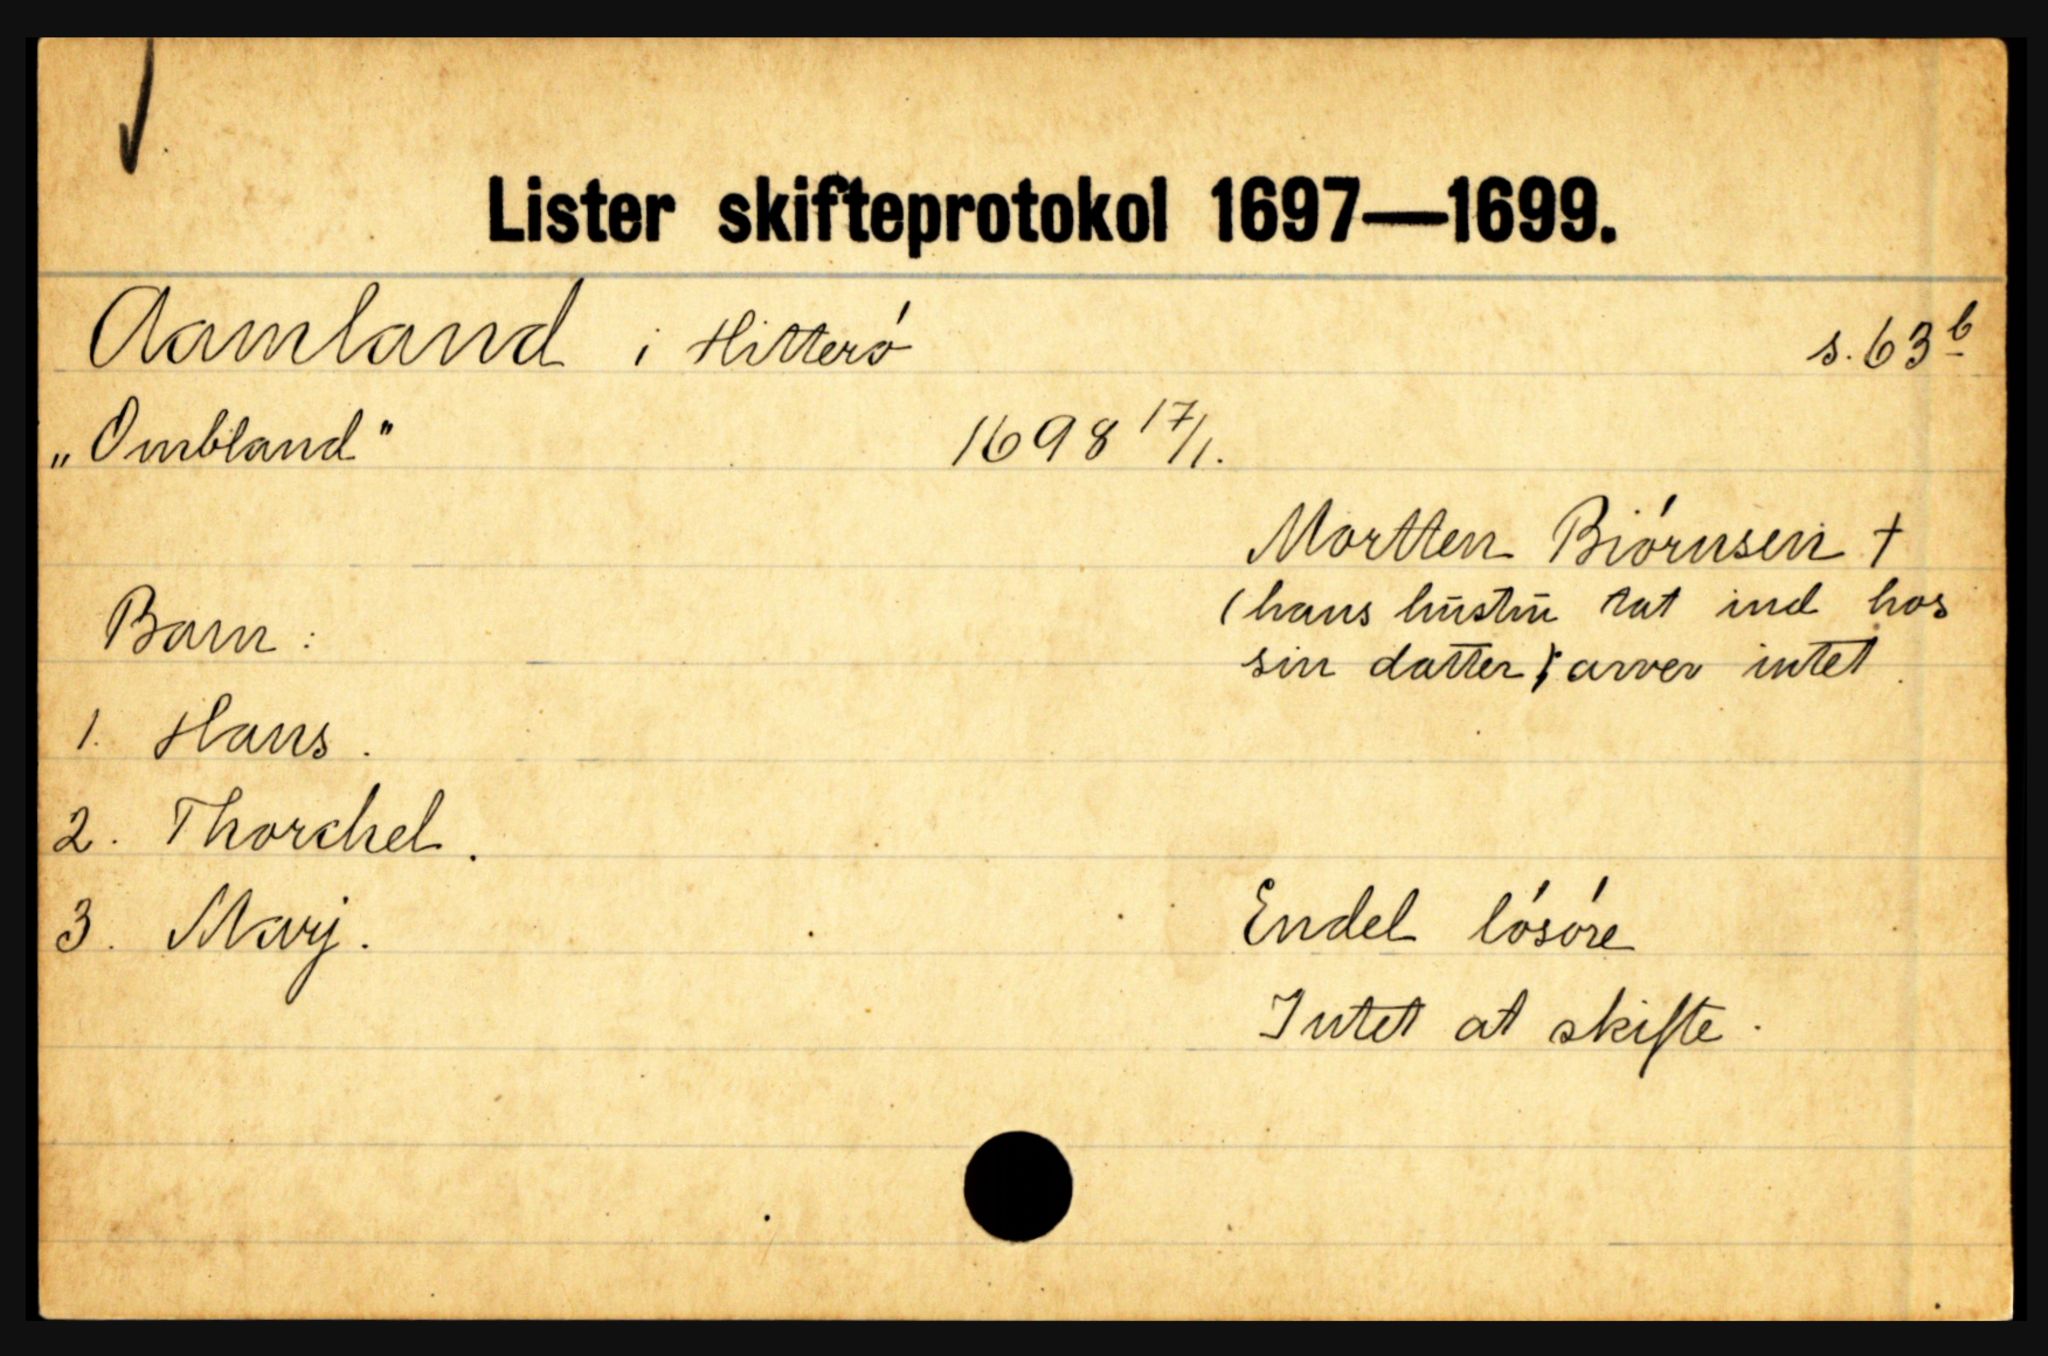 Lister skifteprotokol 1697—1699.
Aamland i Hitteró s. 63 b
„Ombland" 1698 17/1.
Mortten Biórnsen †
(hans hustru tat ind hos
Barn:
sin datter); arver intet.
1. Hans.
2. Thorchel.
3. Marj. Endel lósóre
Intet at skifte.